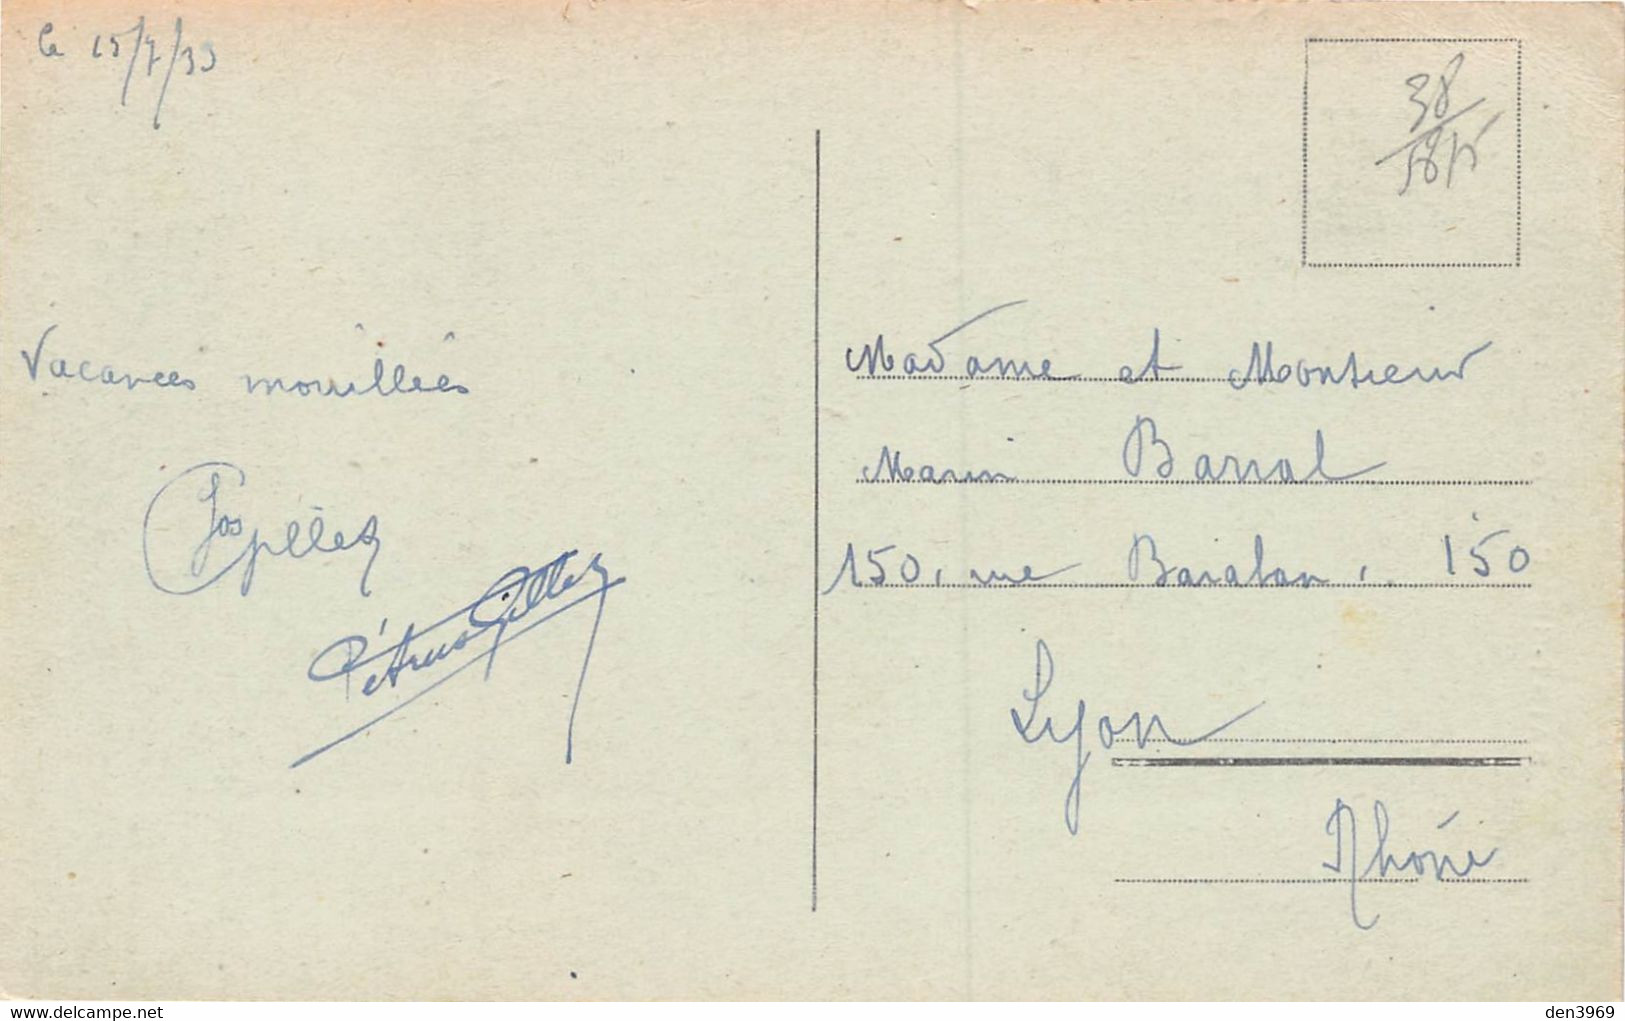 le 15/7/33
Vacances mouillées
Pétrus
38
Madame et Monsieur
Marin Barral
150, rue Baraban, 150
Lyon
Rhône
www.delcampe.net
den3969